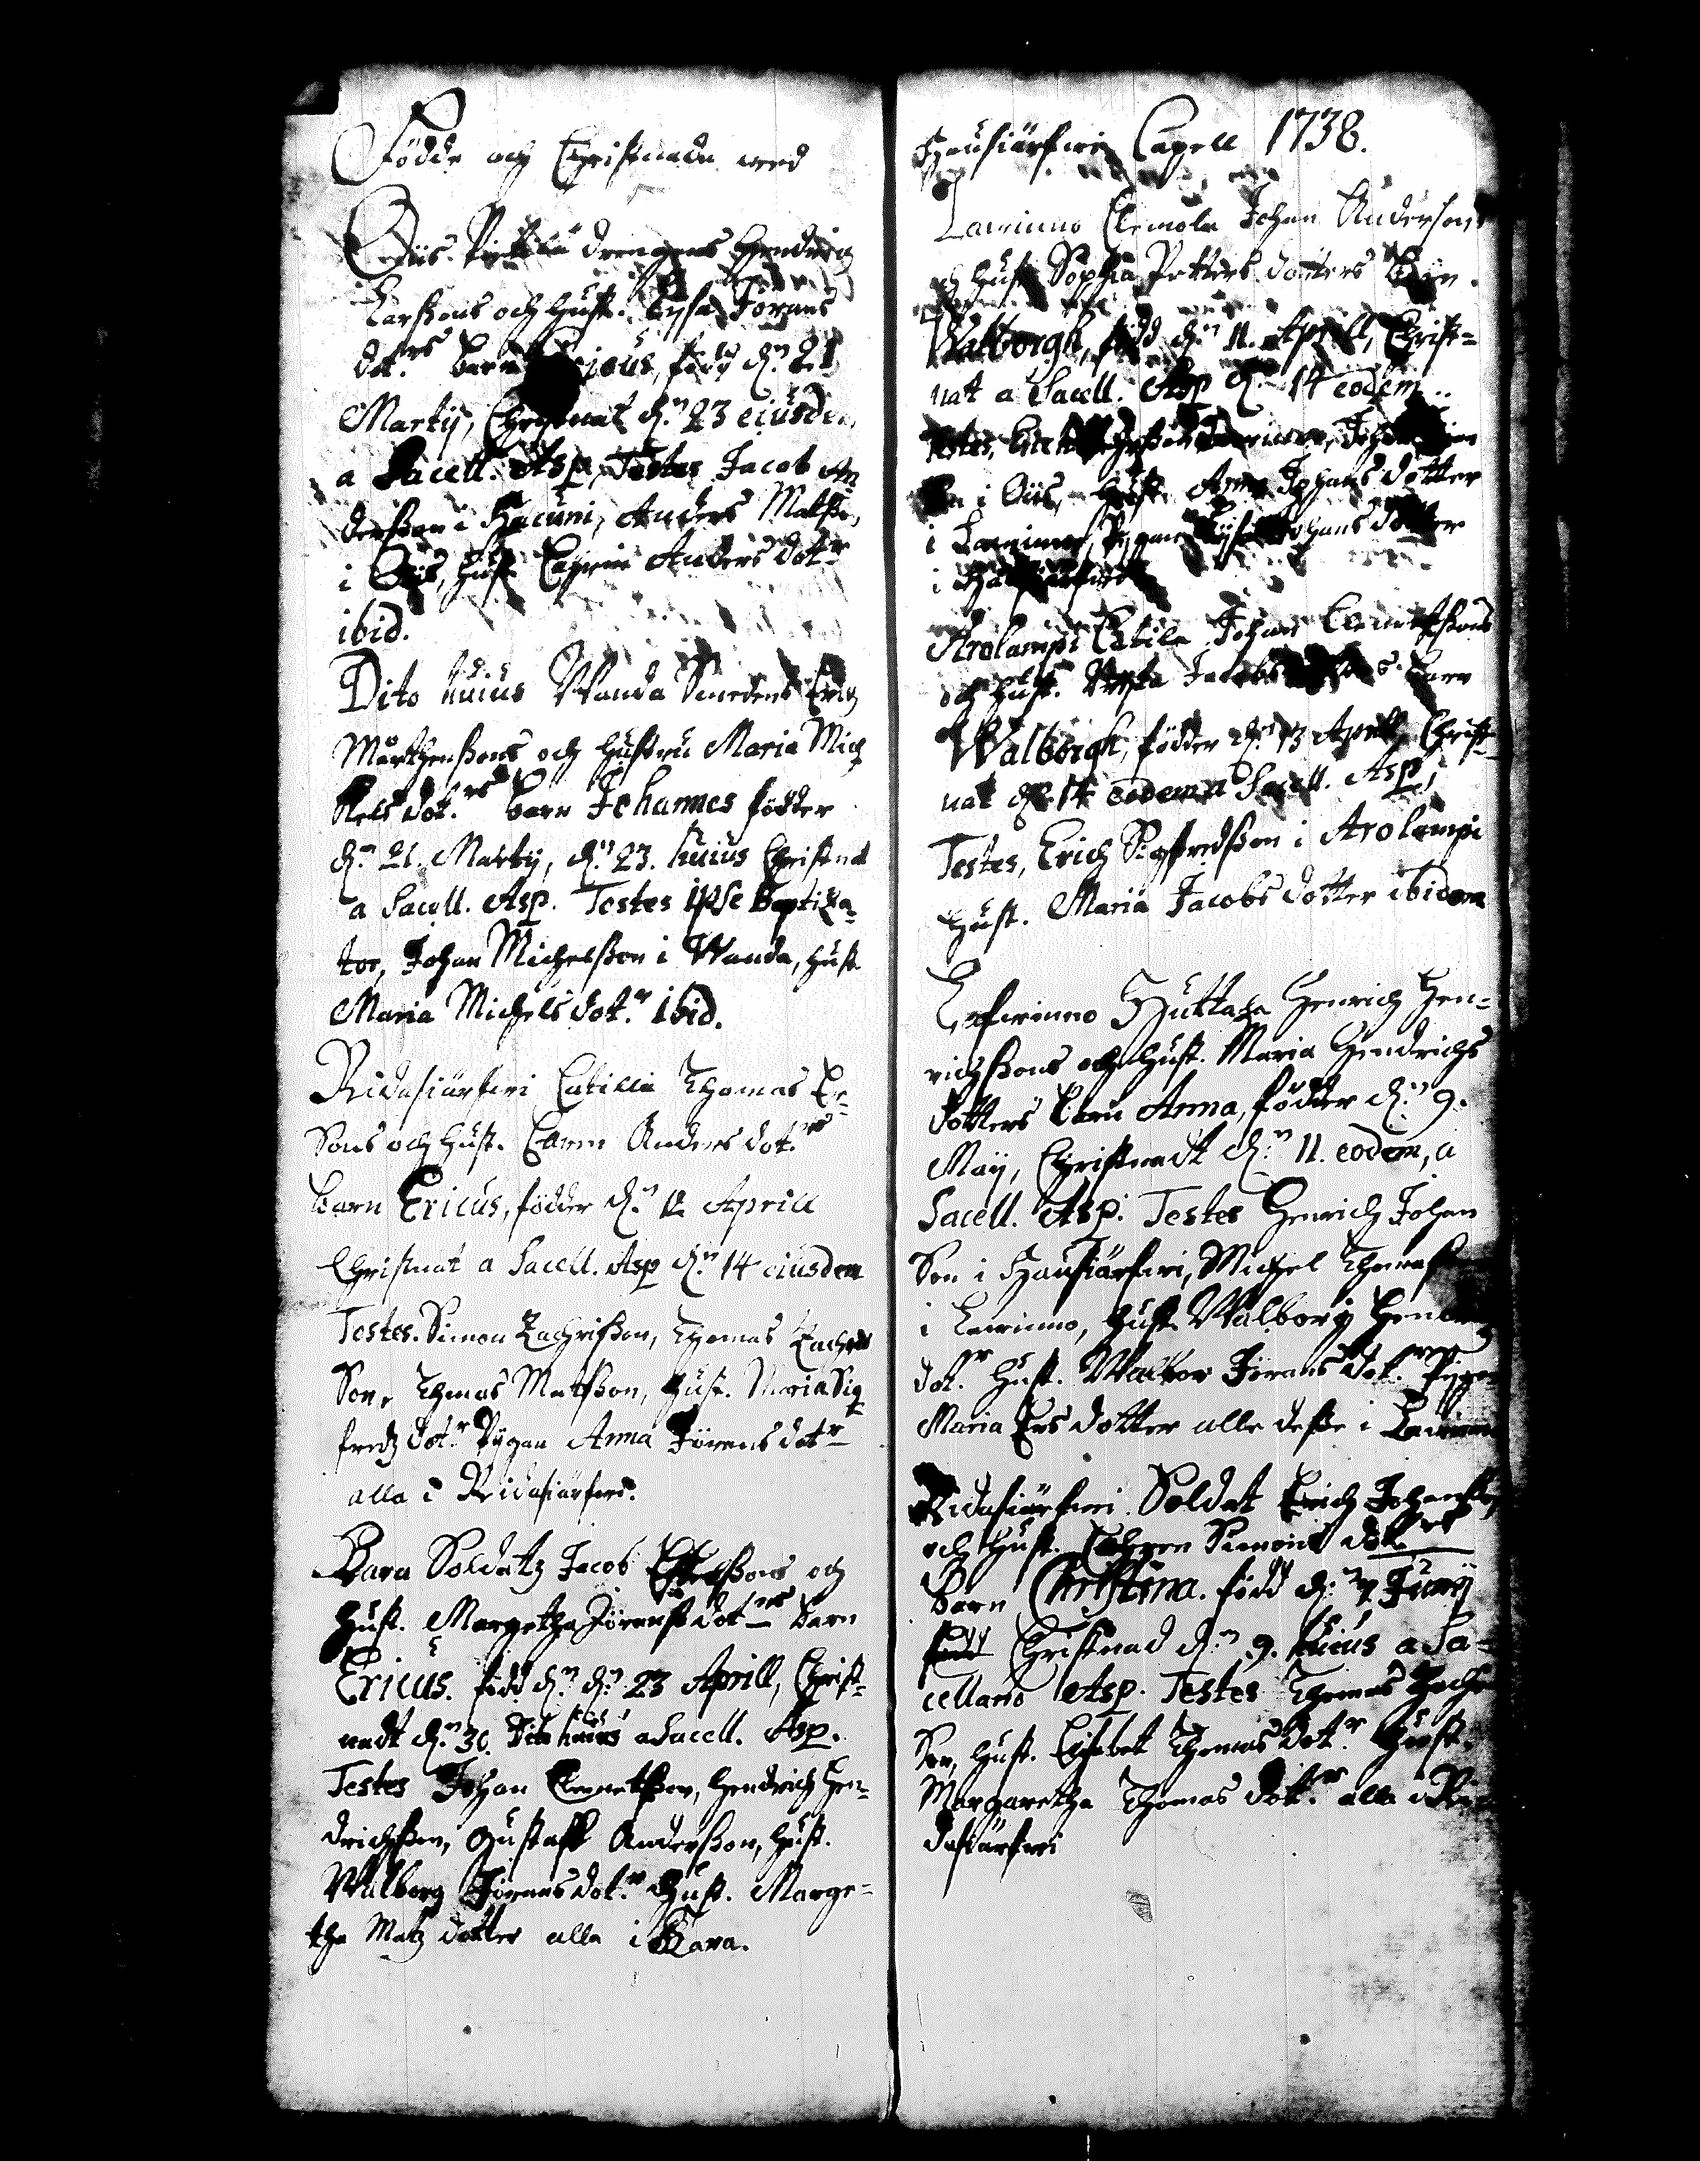 Födde och Christnade wed
Oiis Pirttilä drengens Hendrich
Larßons och Hust. Lysa Jörans
dotrs barn Ericus, född dn 21
Martij, Christnat dn 23 eiusdem
a Sacell. Asp, Testes Jacob An
derßon i Hacuni, Anders Matßon,
i Oiis, Hust. Caprin Anders dotr
ibid.
Dito huius Wanda Smedens Erich
Mårthenßons och hustru Maria Mich
kels dotrs barn Johannes födder
dn 21. Martij, dn 23. huius Christnat
a Sacell. Asp. Testes ipse Baptiza=
tor, Johan Michelßon i Wanda, Hust
Maria Michels dotr ibid.
Ridasiärfwi Catilla Thomas Er=
Sons och Hust. Carin Anders dotrs
barn Ericus, födder dn 12 Aprill
Christnat a Sacell. Asp dn 14 eiusdem
Testes. Simon Zachrißon, Thomas Zachris
Son, Thomas Matßon, Hust. Maria Sig=
fredz dotr Pÿgan Anna Jörans dotr
alla i Ridasiärfwi.
Bara Soldatz Jacob Eskelßons och
Hust. Margetha Jörans dotrs barn
Ericus. född dn dn 23 Aprill, Christ=
nadt dn 30. Dito huius a Sacell. Asp.
Testes Johan Clemetßon, Hendrich Hen=
drichßon, Gustaff Anderßon, Hust.
Walborg Jörans dotr Hust. Marge=
tha Matz dotter alla i Bara.
Hausiärfwi Capell 1738.
Lawinno Clemola Johan Andersons
och Hust Sophia Petters dotters barn.
Walborgh, född dn 11. Aprill, Christ=
nat a Sacell. Asp dn 14 eodem..
Testes, Erich
i Oiis, Hust. Anna Johans dotter
i Lawinno, Pÿgan Lysa Johans dotter
i
Arolampi Catila Johan Clemetßons
och Hust. Jacobs barn
Walborgh, födder dn 13 Aprill, Christ=
nat dn 14 eodem a Sacell. Asp,
Testes, Erich Sigfredßon i Arolampi
Hust. Maria Jacobs dotter ibidem
Erfwinno Huttaha Henrich Hen=
richßons och Hust. Maria Hendrichs
dotters barn Anna, födder dn 9.
Maij, Christnadt dn 11. eodem, a
Sacell. Asp. Testes Henrich Johan
Son i Hausiärfwi, Michel Thomaß
i Lawinno, Hust. Walborg Hendrichz
dotr Hust. Walbor Jörans dotr Pigan
Maria Ers dotter alle deße i Lawinno
Ridasiärfwi Soldat Erich Johanßs
och Hust. Cahren Simons dotrs
Barn Christina. född dn 7 Junij
Christnad dn 9. huius a Sa=
cellano Asp. Testes Thomas Zachris
Son, Hust. Lisbet Thomas dotr Hust.
Margaretha Thomas dotr alla i Ri
dasiärfwi